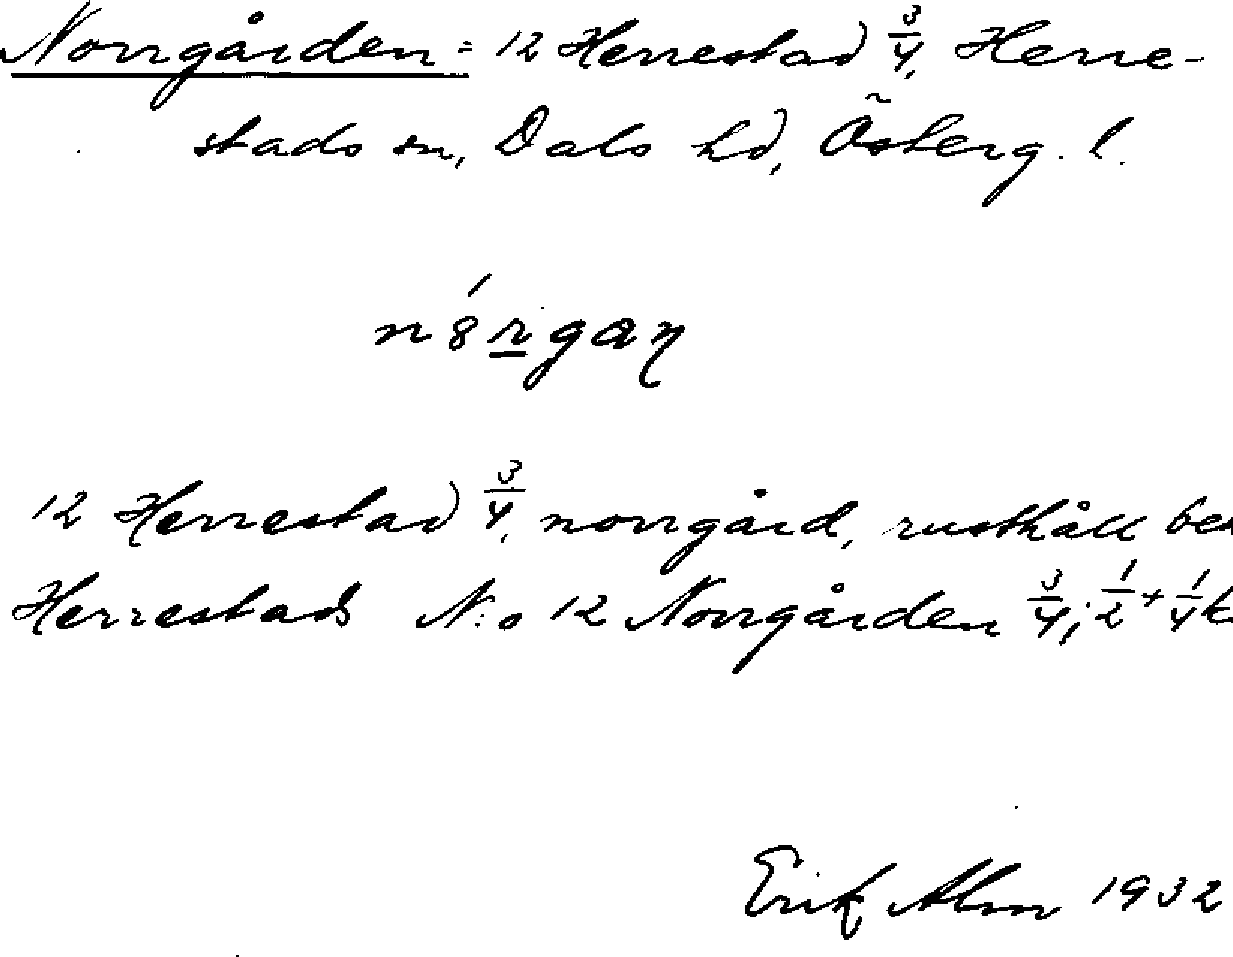 Norrgården = 12 Herrestad 3/4, Herre-
stads sn, Dals hd, Österg. l.
n8́r̲gaŋ
12 Herrestad 3/4, norrgård, rusthåll
Herrestads N:o 12 Norrgården 3/4; 1/2 + 1/4
Erik Alm 1932